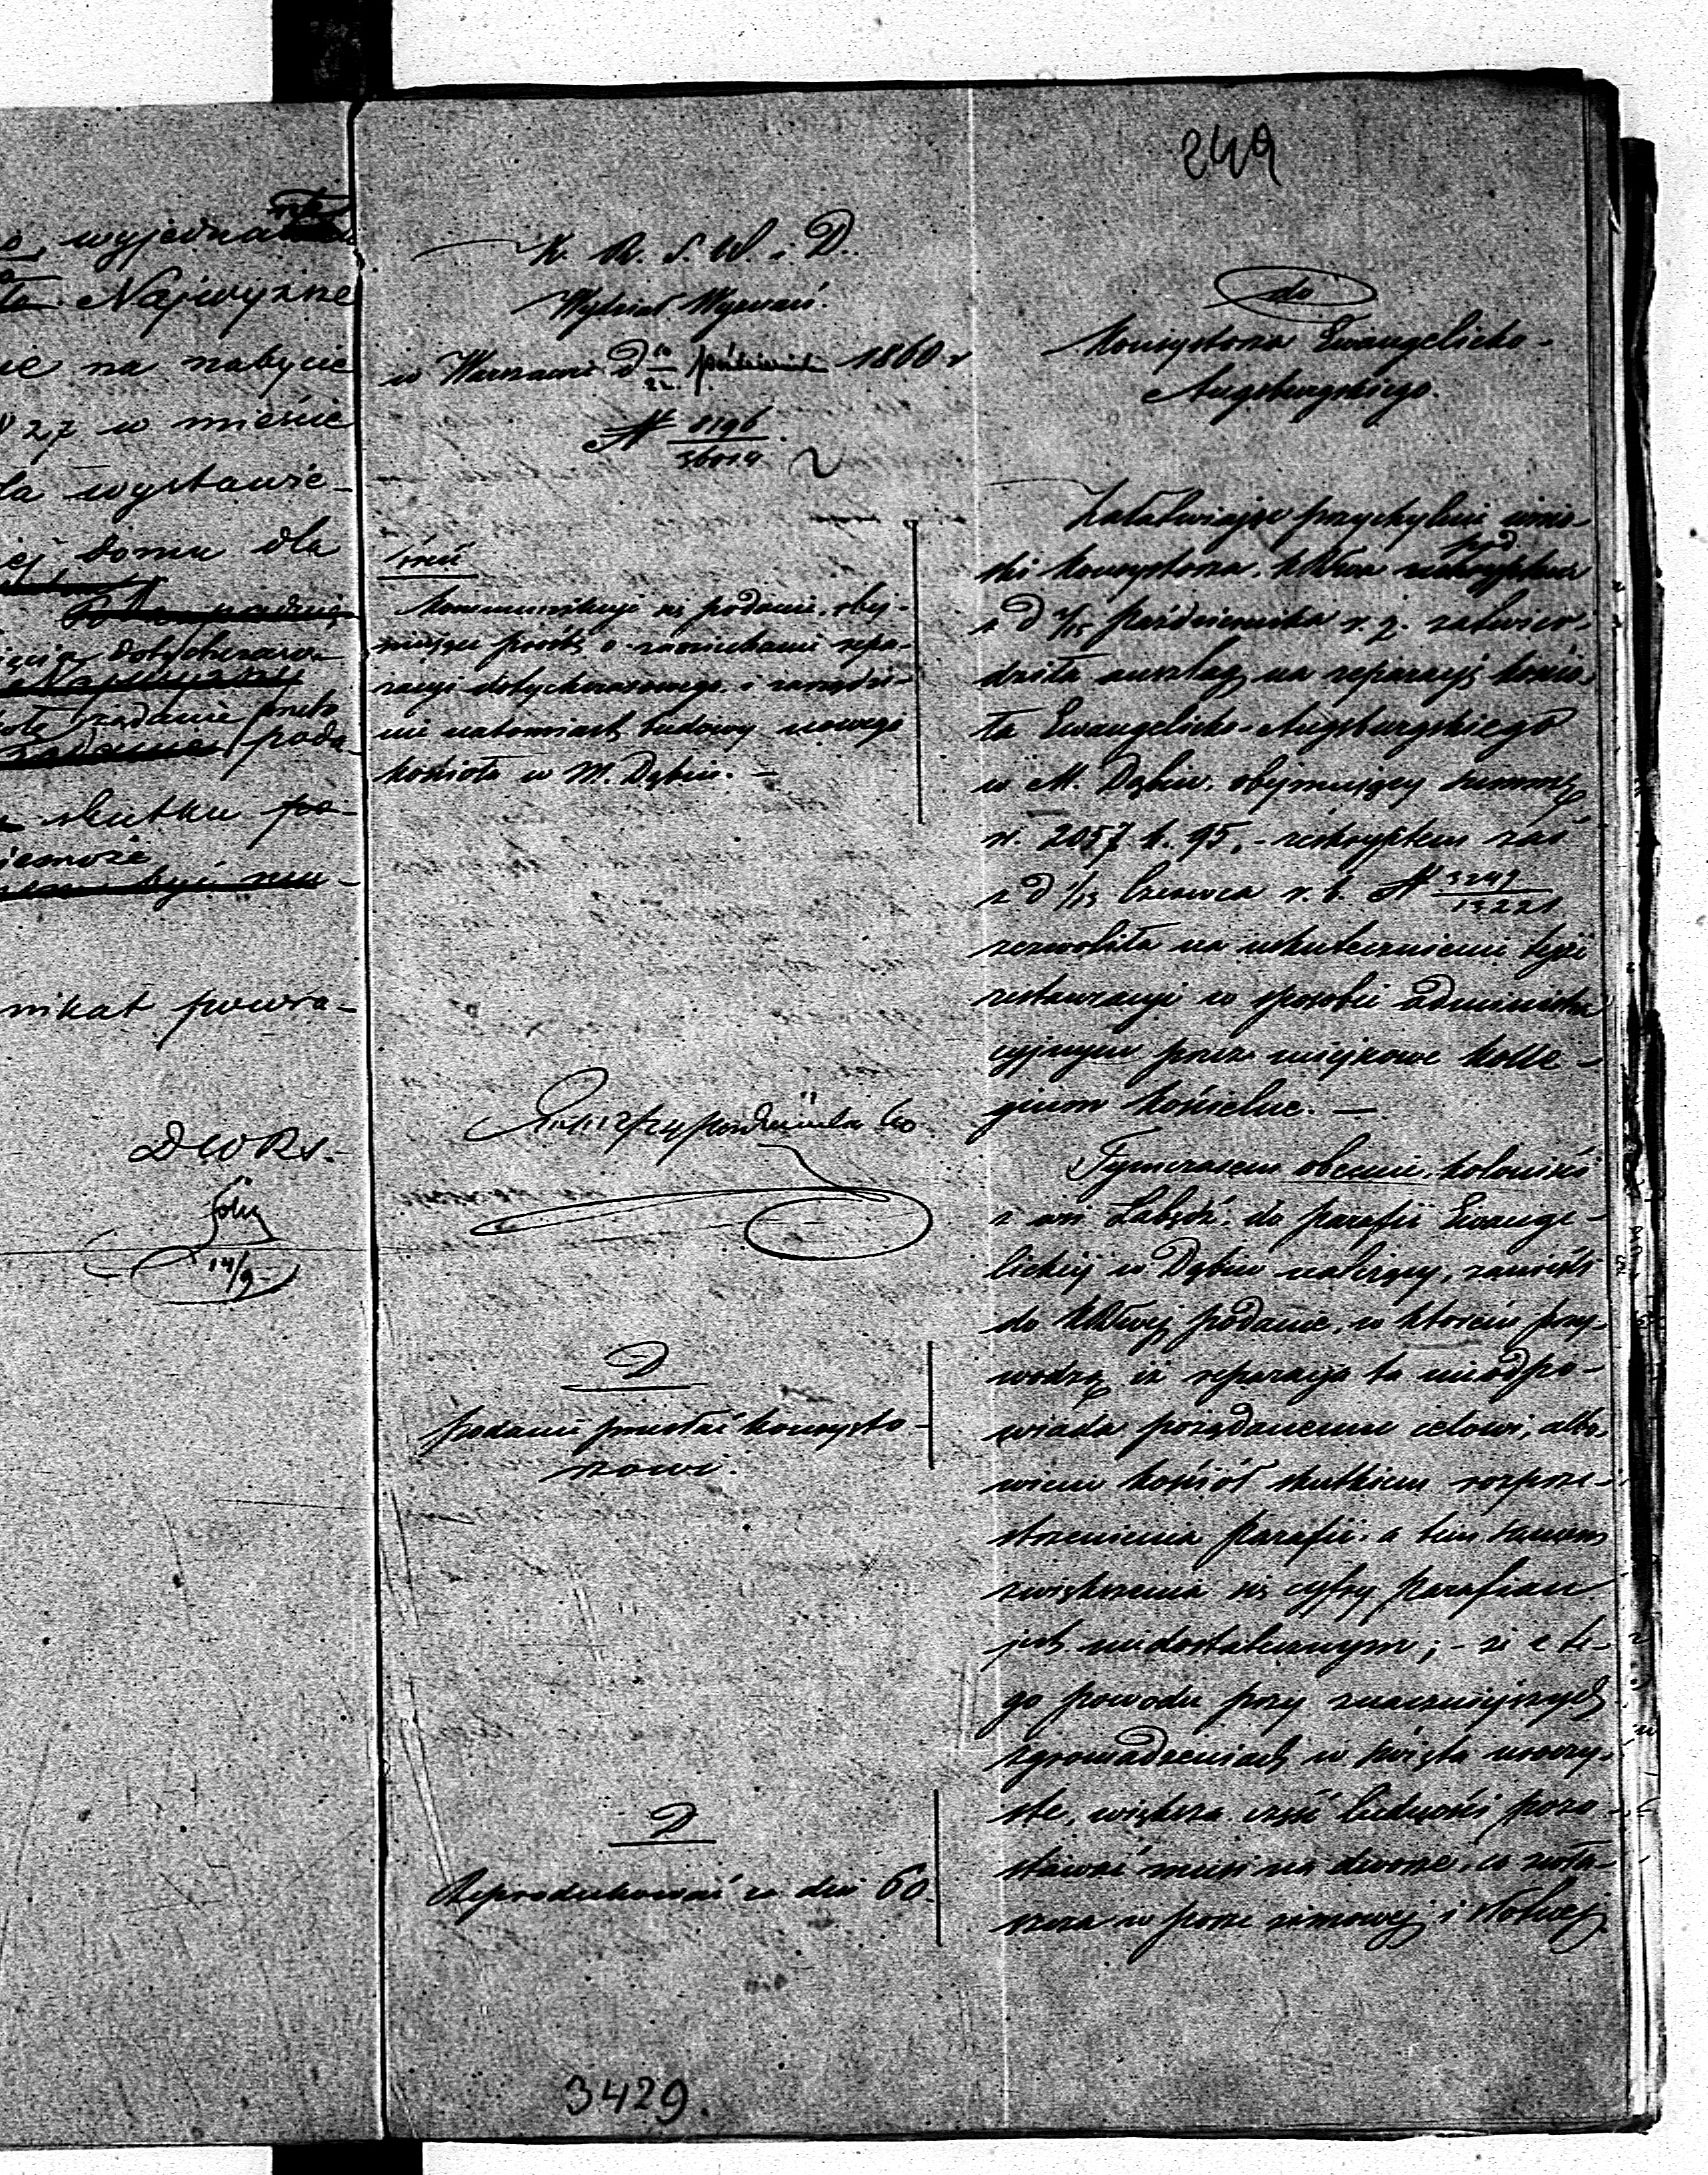 wyjedna
Najwyższe
nie na nabycie
27 w mieście
la wystawie-
ej domu dla
dotychczaso
żądanie
poda-
skutku po-
nikat powra-
DWRs.
14/9
249
K. R. S. W. i D.
Wydział Wyznań.
w Warszawie d 10/22 Października 1860 r
N 8196/36014
treść
Kommunikuje się podanie, obej-
mujące prośbę o zaniechanie repa-
racyi dotychczasowego, i zarządze-
nie natomiast budowy nowego
kościoła w M. Dąbiu. -
Października 60
D
podanie przesłać Konsysto-
rzowi.
D
Reprodukować za dni 60.
3429.
do
Konsystorza Ewangelicko-
Augsburgskiego.
Załatwiając przychylnie wnio-
ski Konsystorza, KRząd
z d /15 Października r. z. zatwier-
dziła anszlag na reparacyę kościo-
ła Ewangelicko-Augsburgskiego
w M. Dąbiu, obejmujący summę
rs. 2057 k. 95, - reskryptem zaś
z d 1/13 Czerwca r. b. N 3249/13221
zezwoliła na uskutecznienie tejże
restauracyi w sposobie administra
cyjnym przez miejscowe Kolle-
gium Kościelne. -
Tymczasem obecnie, koloniści
z wsi Łabędź, do parafii Ewange-
lickiej w Dąbiu należący, zanieśli
do podanie, w którem przy-
wodzą, iż reparacya ta nieodpo-
wiada pożądanemu celowi, albo-
wiem kościół skutkiem rozprze-
strzenienia parafii, a tem samem
zwiększenia się cyfry parafian
jest niedostatecznym; - że z te-
go powodu przy znaczniejszych
zgromadzeniach w święta uroczy-
ste, większa część ludności pozo-
stawać musi na dworze, co zwła-
szcza w porze zimowej i słotnej